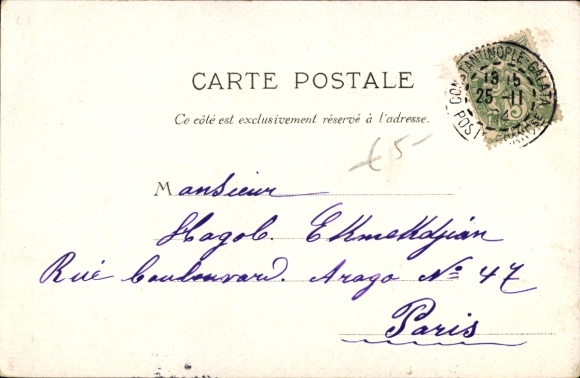 CARTE POSTALE
Ce côté est exclusivement réservé à l'adresse.
CONSTANTINOPLE-GALATA
13 15
25 11
POSTE FRANÇAISE
£5-
Monsieur
Hagob. EKmeKdjián
Rué boulouvard. Arago No 47
Paris